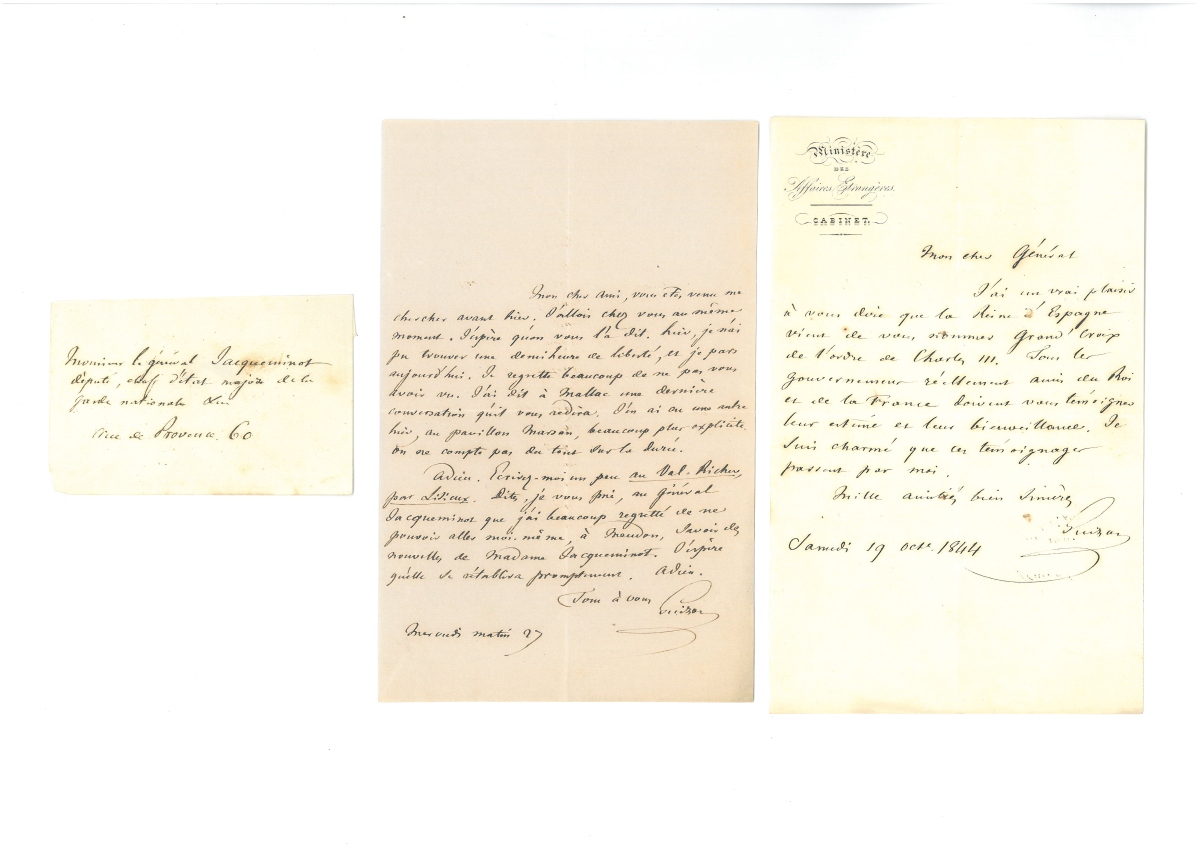 Monsieur le général Jacqueminot
député, chef d'état major de la
garde nationale
rue de Provence. 60
Mon cher ami, vous etes venu me
chercher avant hier. J'allois chez vous au même
moment. J'espère qu'on vous l'a dit. hier, je n'ai
pu trouver une demiheure de liberté, et je pars
aujourd'hui. Je regrette beaucoup de ne pas vous
avoir vu. J'ai dit à Mallac une dernière
conversation qu'il vous redira. J'en ai eu une autre
hier, au pavillon Marsan, beaucoup plus explicite.
on ne compte pas du tout sur la durée.
Adieu. Ecrivez-moi un peu au Val-Richer,
par Lisieux. Dites, je vous prie, au général
Jacqueminot que j'ai beaucoup regretté de ne
pouvoir aller moi-même, à Meudon, savoir des
nouvelles de Madame Jacqueminot. J'espère
qu'elle se rétablira promptement. Adieu.
Tout à vous
Guizot
Mercredi matin 27
Ministère
DES
Affaires Etrangères.
CABINET.
Mon cher Général
J'ai un vrai plaisir
à vous dire que la Reine d'Espagne
vient de vous nommer Grand Croix
de l'ordre de Charles III. Tous les
gouvernemens réellement amis du Roi
et de la France doivent vous témoigner
leur estime et leur bienveillance. Je
suis charmé que ces témoignages
passent par moi.
Mille amitiés bien sincères
Guizot
Samedi 19 octe. 1844